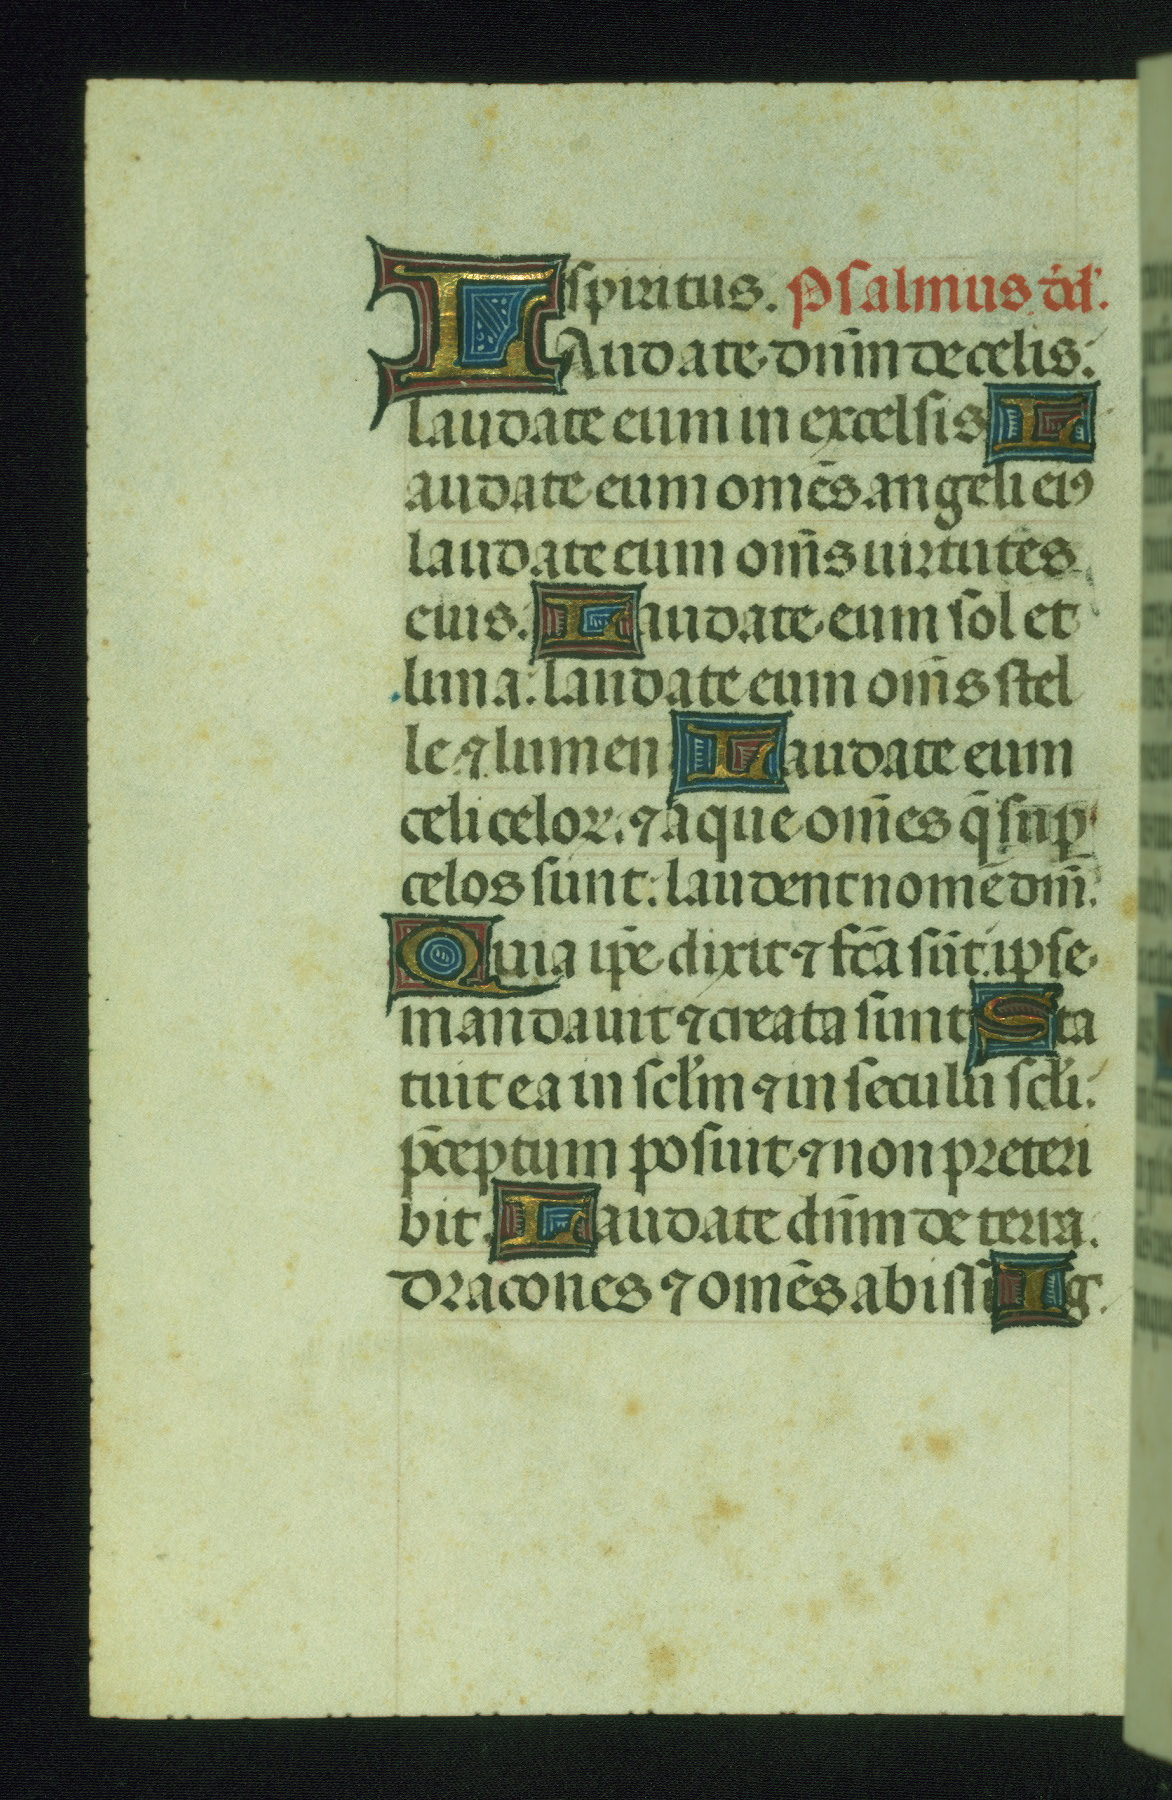 spiritus. Psalmus dd'.
LAudate dn̄m de celis:
laudate eum in excelsis L
audate eum om̄es angeli eiꝰ
laudate eum om̄s uirtutes
eius. Laudate eum sol et
luna: laudate eum om̄s stel
le ⁊ lumen Laudate eum
celi celoꝝ. ⁊ aque om̄es q̄ sup̄
celos sunt: laudent nomē dn̄i.
Quia ip̄e dixit ⁊ fc̄a sūt. ipse
mandauit ⁊ creata sunt Sta
tuit ea in scl̄m ⁊ in seculū scl̄i:
p̄ceptum posuit ⁊ non preteri
bit. Laudate dn̄m de terra.
dracones ⁊ om̄es abissi Ig.